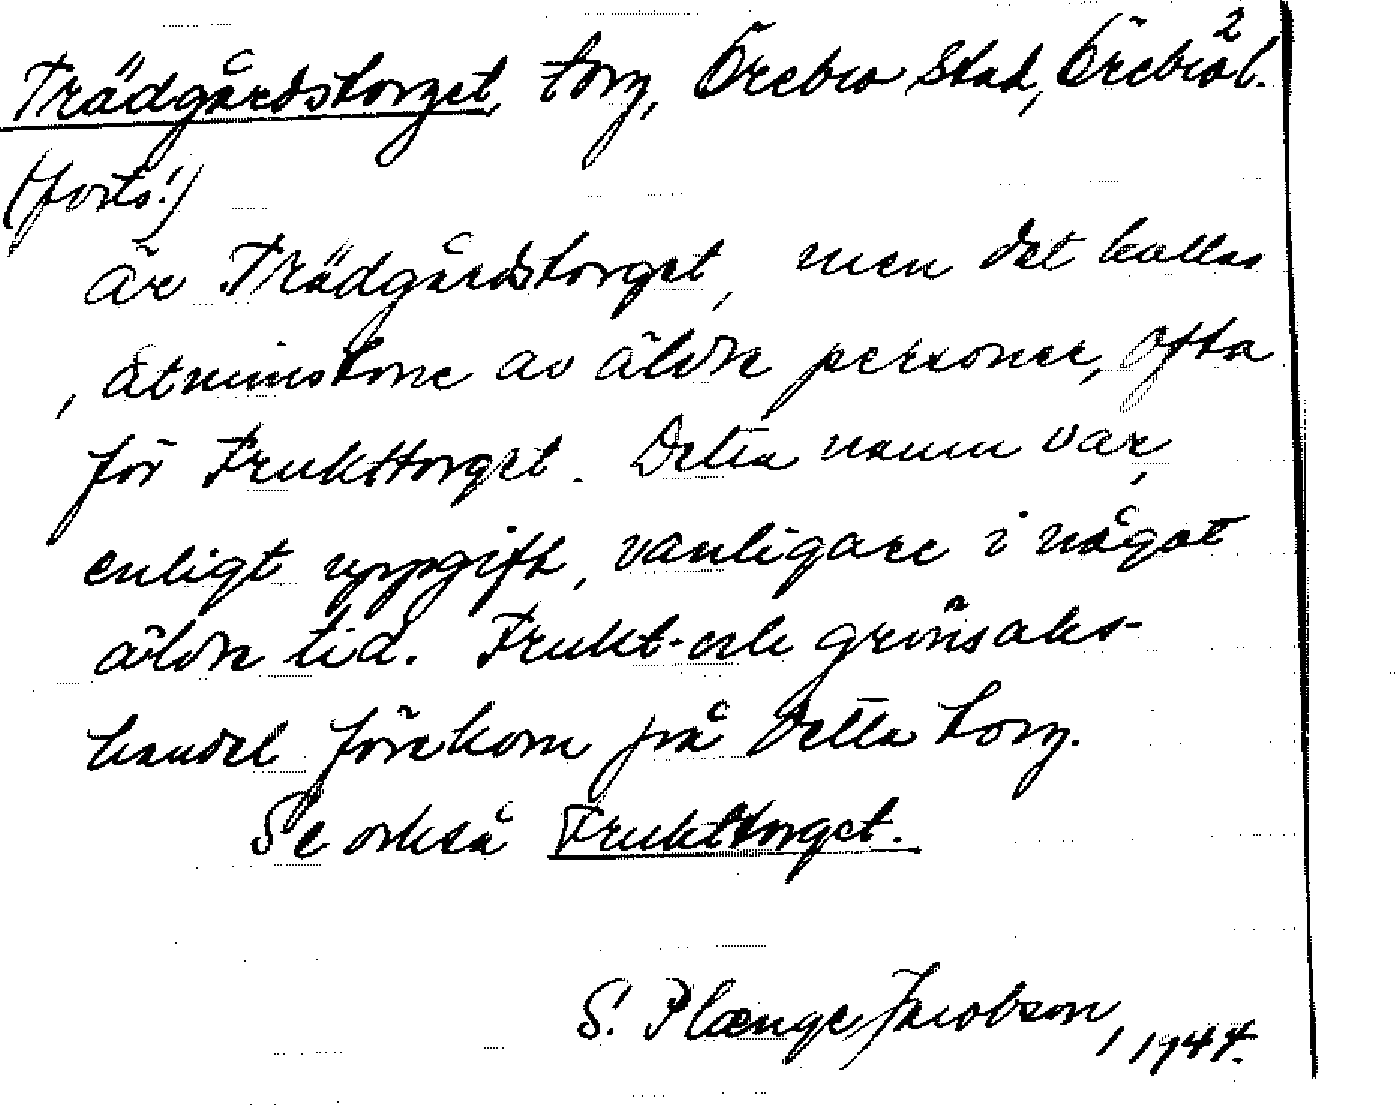 2
Trädgårdstorget, torg, Örebro stad, Örebro l.
(forts.)
är Trädgårdstorget, men det kallas
, åtminstone av äldre personer, ofta
för Frukttorget. Detta namn var,
enligt uppgift, vanligare i något
äldre tid. Frukt- och grönsaks-
handel förekom på detta torg.
Se också Frukttorget.
S. Plænge Jacobson, 1944.